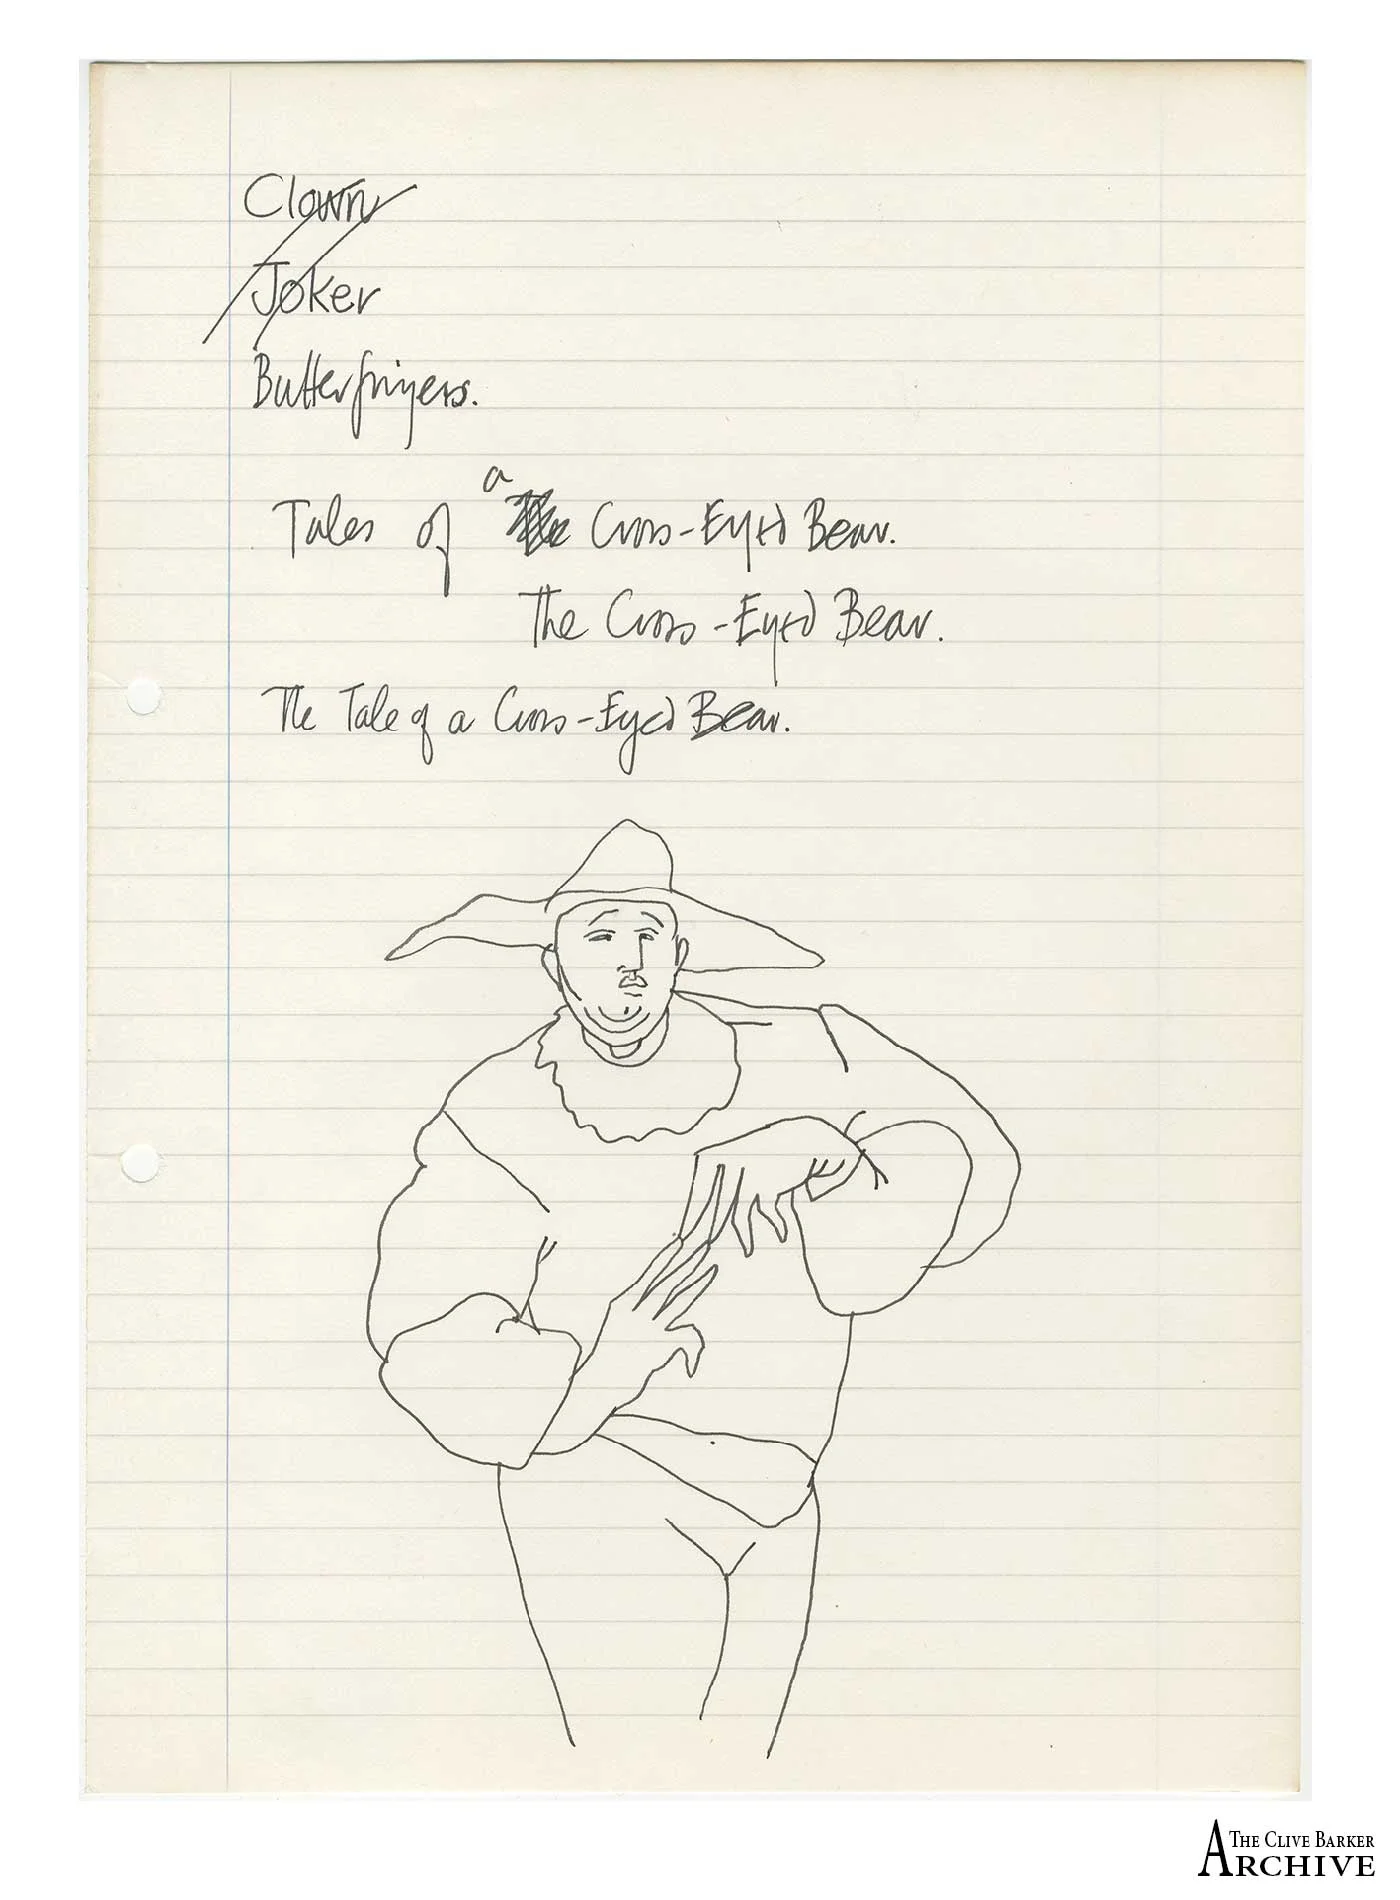 Clown
Joker
Butterfingers.
Tales of a Cross-Eyed Bear.
The Cross-Eyed Bear.
The Tale of a Cross-Eyed Bear.
THE CLIVE BARKER
ARCHIVE